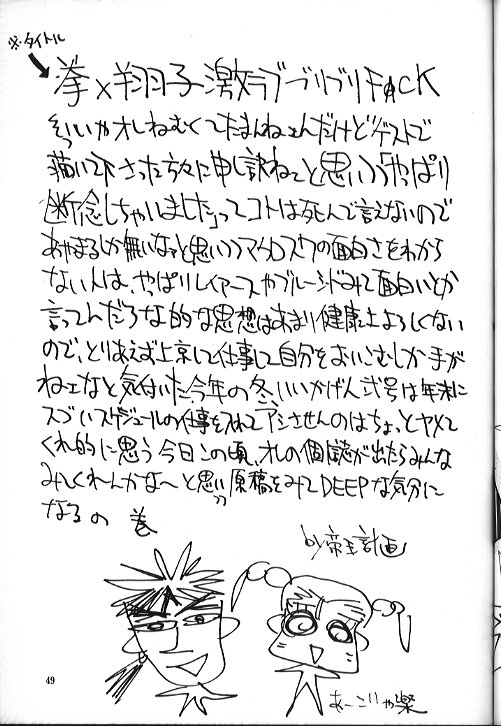 ※タイトル
拳×翔子激ラブブリブリFACK
そういやオレねむくてたまんねェんだけどゲストで
描いて下さった方々に申し訳ねぇと思いつつ「やっぱり
断念しちゃいました」ってコトは死んで言えないので
あやまるしか無いなァと思いつつマクロスクの面白さをわから
ない人は、やっぱりレイアースやブルーシードみて面白いとか
言ってんだろな的な思想はあまり健康上よろしくない
ので、とりあえず上京して仕事して自分をおいこむしか手が
ねェなと気付いた今年の冬、いいかげん弐号は年末に
スゴいスケジュールの仕事を入れてアシさせんのはちょっとヤメて
くれ的に思う今日この頃、オレの個人誌が出たらみんな
みてくれんかな〜と思いつつ原稿をみてDEEPな気分に
なるの巻
by帝王計画
あーこりゃ楽
49